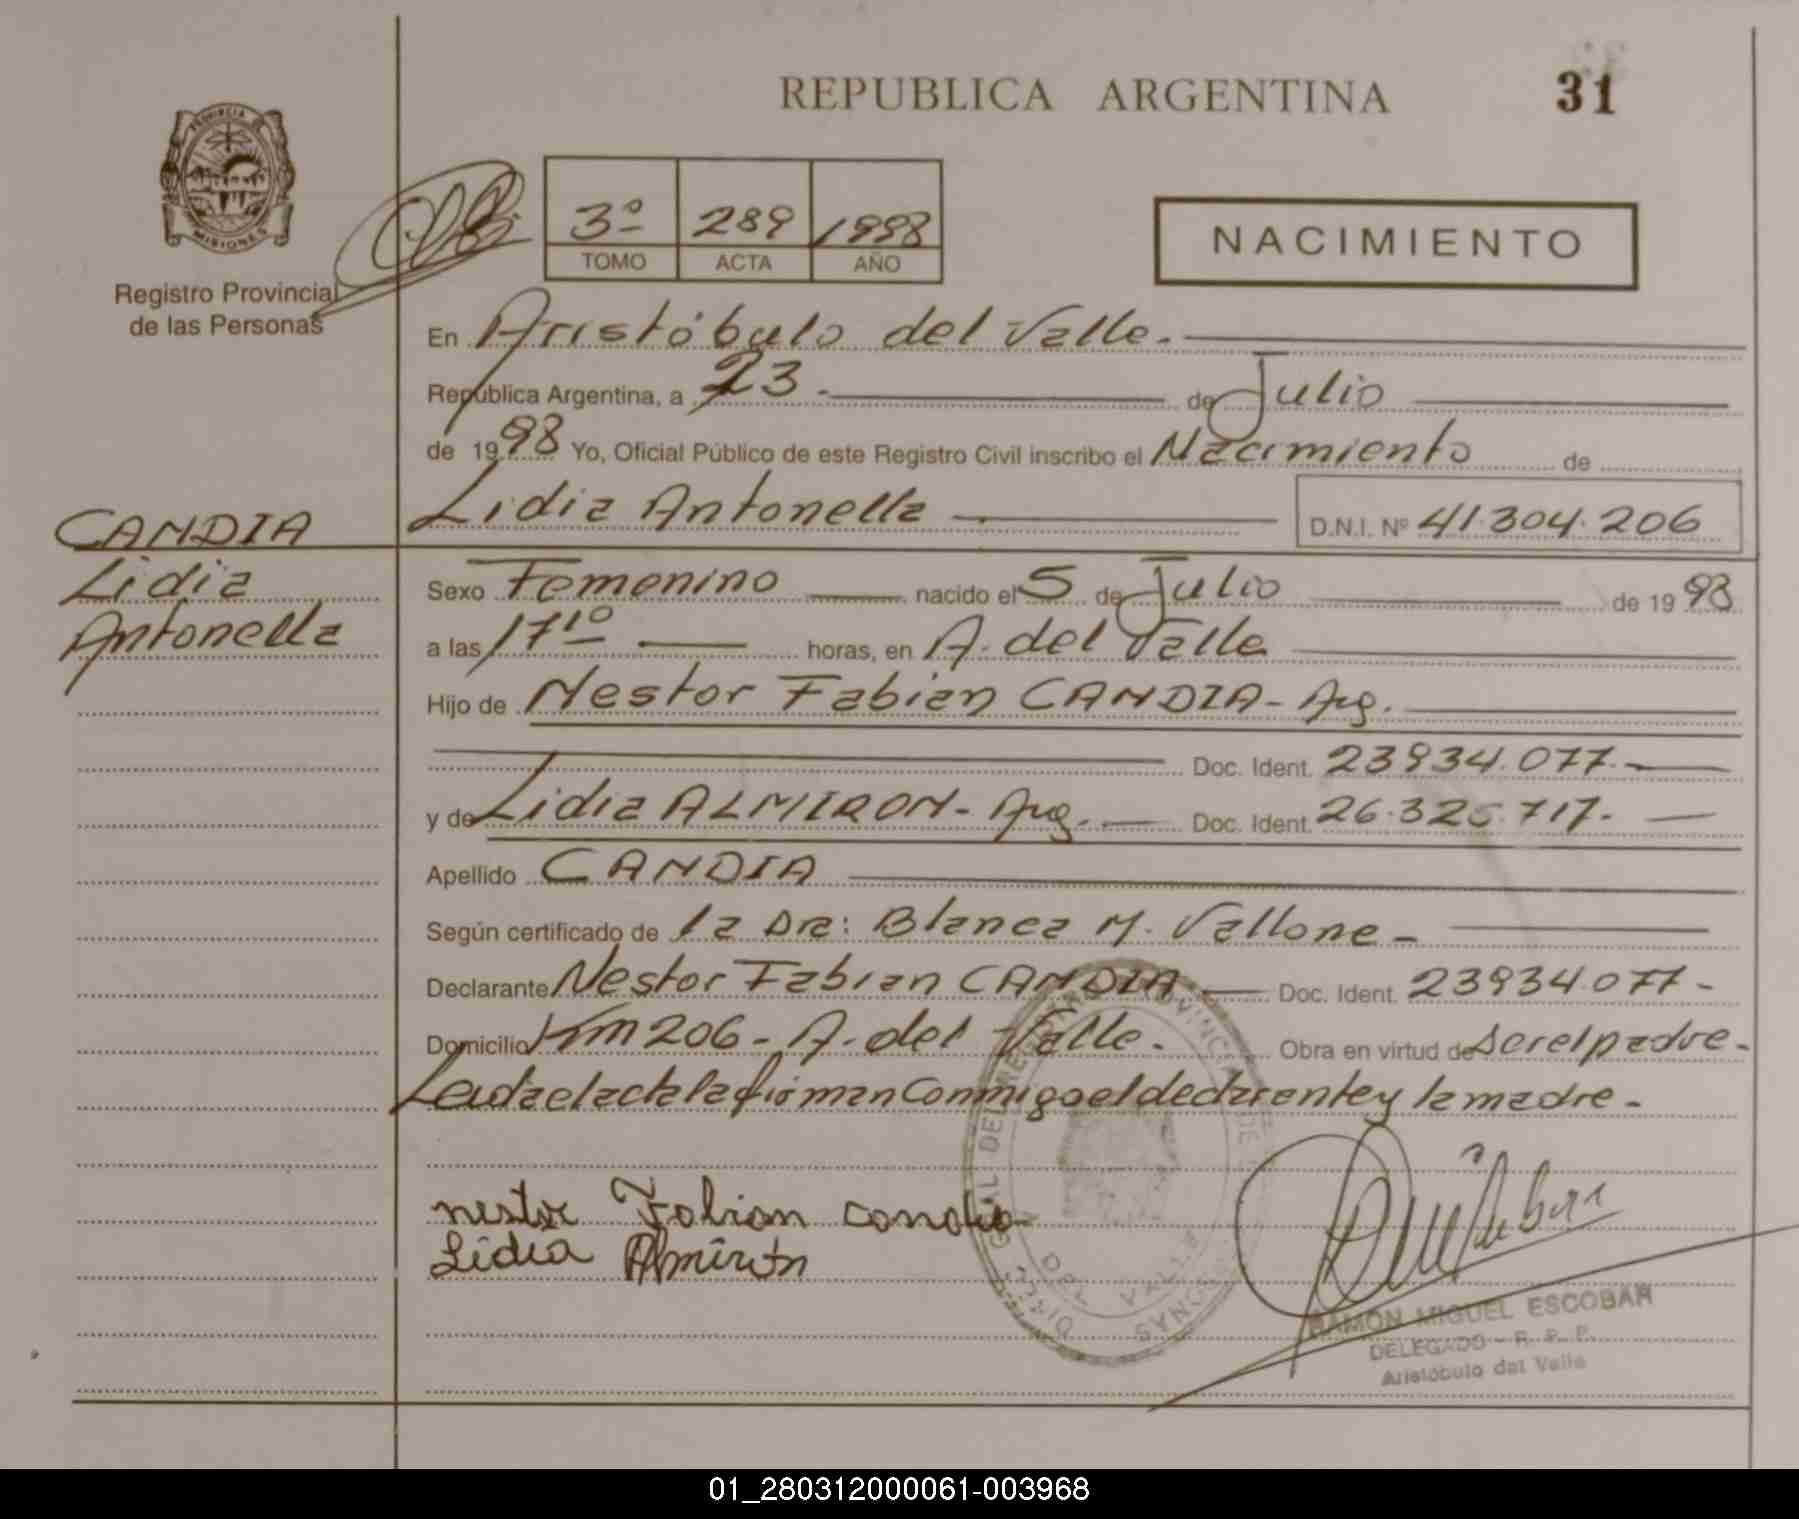 REPUBLICA ARGENTINA 31
PROVINCIA DE
MISIONES
Registro Provincial
de las Personas
3º 289 1998
TOMO ACTA AÑO
NACIMIENTO
En Aristóbulo del Valle.
República Argentina, a 23 de Julio
de 1998 Yo, Oficial Público de este Registro Civil inscribo el Nacimiento de
Lidia Antonella D.N.I. Nº 41.304.206
CANDIA
Lidia
Antonella
Sexo Femenino nacido el 5 de Julio de 1998
a las 17 10 horas, en A. del Valle
Hijo de Nestor Fabian CANDIA - Arg.
Doc. Ident. 23934.077.
y de Lidia ALMIRON - Arg. Doc. Ident. 26.325.717.
Apellido CANDIA
Según certificado de la Dra: Blanca M. Vallone -
Declarante Nestor Fabian CANDIA Doc. Ident. 23934.077 -
Domicilio Km 206 - A. del Valle. Obra en virtud de ser el padre -
Leida el acta la firman conmigo el declarante y la madre -
nestor Fabian candia
Lidia Almiron
RAMON MIGUEL ESCOBAR
DELEGADO - R. P. P.
Aristóbulo del Valle
01_280312000061-003968